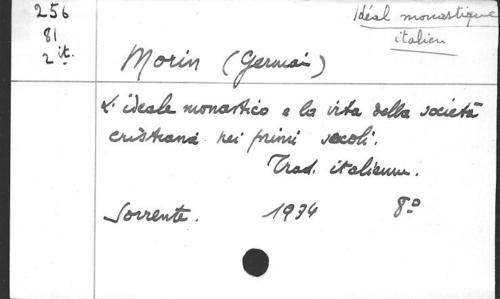 256
81
2 it.
Idéal monastique
italien
Morin (Germain)
L'ideale monastico e la vita della società
cristiana nei primi secoli.
Trad. italienne.
Sorrente. 1934 8º